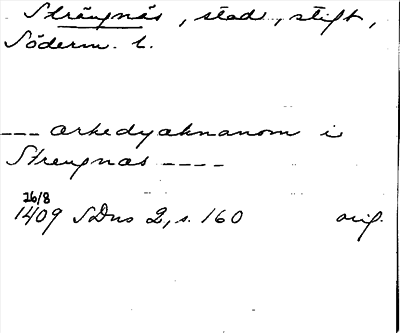 Strängnäs, stad, stift,
Söderm. l.
--- arkedyaknanom i
Strengnas ----
26/8
1409 SDns 2, s. 160 orig.